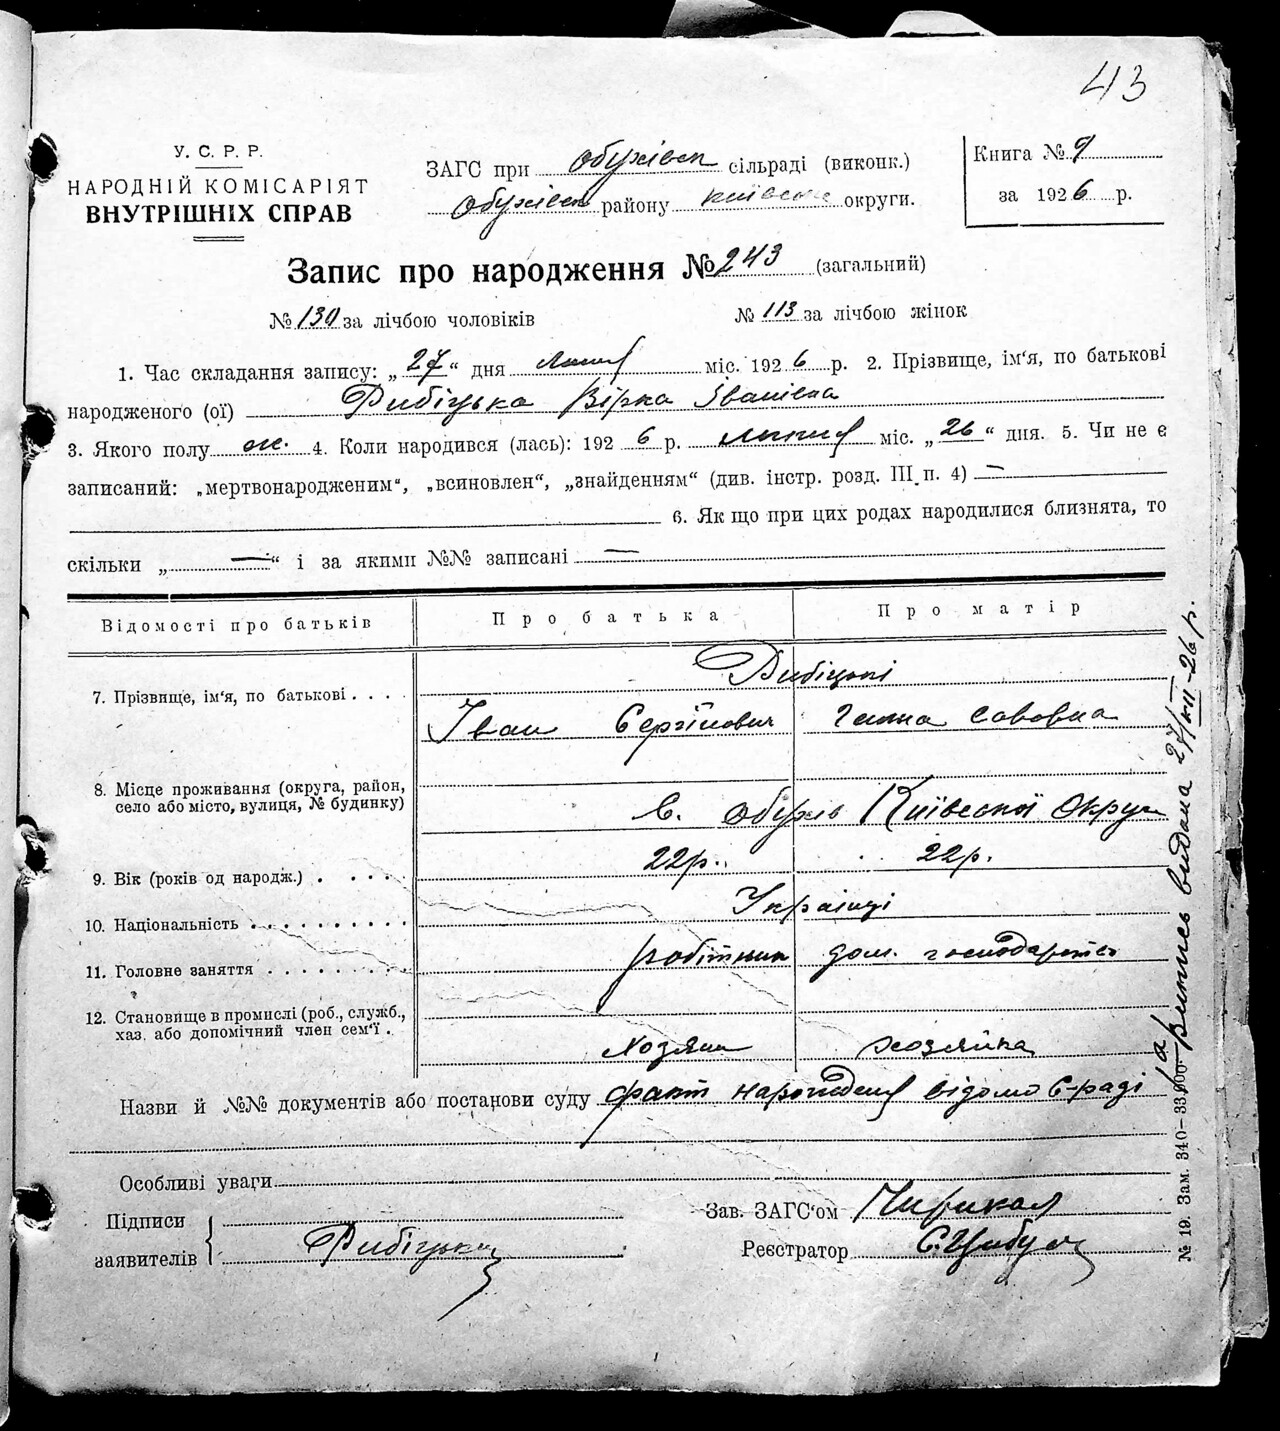 43
У. С. Р. Р.
НАРОДНІЙ КОМІСАРІЯТ
ВНУТРІШНІХ СПРАВ
ЗАГС при Обухівськ сільраді (виконк.)
Обухівськ району Київськ округи.
Книга № 9
за 1926 р.
Запис про народження № 243 (загальний)
№ 130 за лічбою чоловіків
№ 113 за лічбою жінок
1. Час складання запису: „27“ дня Липня міс. 1926 р. 2. Прізвище, ім'я, по батькові
народженого (ої) Рибіцька Вірка Іванівна
3. Якого полу ж. 4. Коли народився (лась): 1926 р. липня міс. „26“ дня. 5. Чи не є
записаний: „мертвонародженим“, „всиновлен“, „знайденням“ (див. інстр. розд. III п. 4) —
6. Як що при цих родах народилися близнята, то
скільки „—“ і за якими №№ записані —
Відомості про батьків
Про батька
Про матір
7. Прізвище, ім'я, по батькові . . . .
Рибіцькі
Іван Сергійович
Ганна Савовна
8. Місце проживання (округа, район,
село або місто, вулиця, № будинку)
с. Обухів Київської Округи
9. Вік (років од народж.) . . . . .
22р.
22р.
10. Національність . . . . . . . . . .
Українці
11. Головне заняття . . . . . . . . .
робітник
дом. господарство
12. Становище в промислі (роб., службі.,
хаз. або допомічний член сем'ї . .
хозяин
хозяйка
Назви й №№ документів або постанови суду факт народження відомо С-раді
Особливі уваги
Підписи
заявителів
Рибіцький
Зав. ЗАГС'ом
Реєстратор С. Цибул
Випись видана 27/VII-26 р.
№ 19. Зам. 340—33.000.